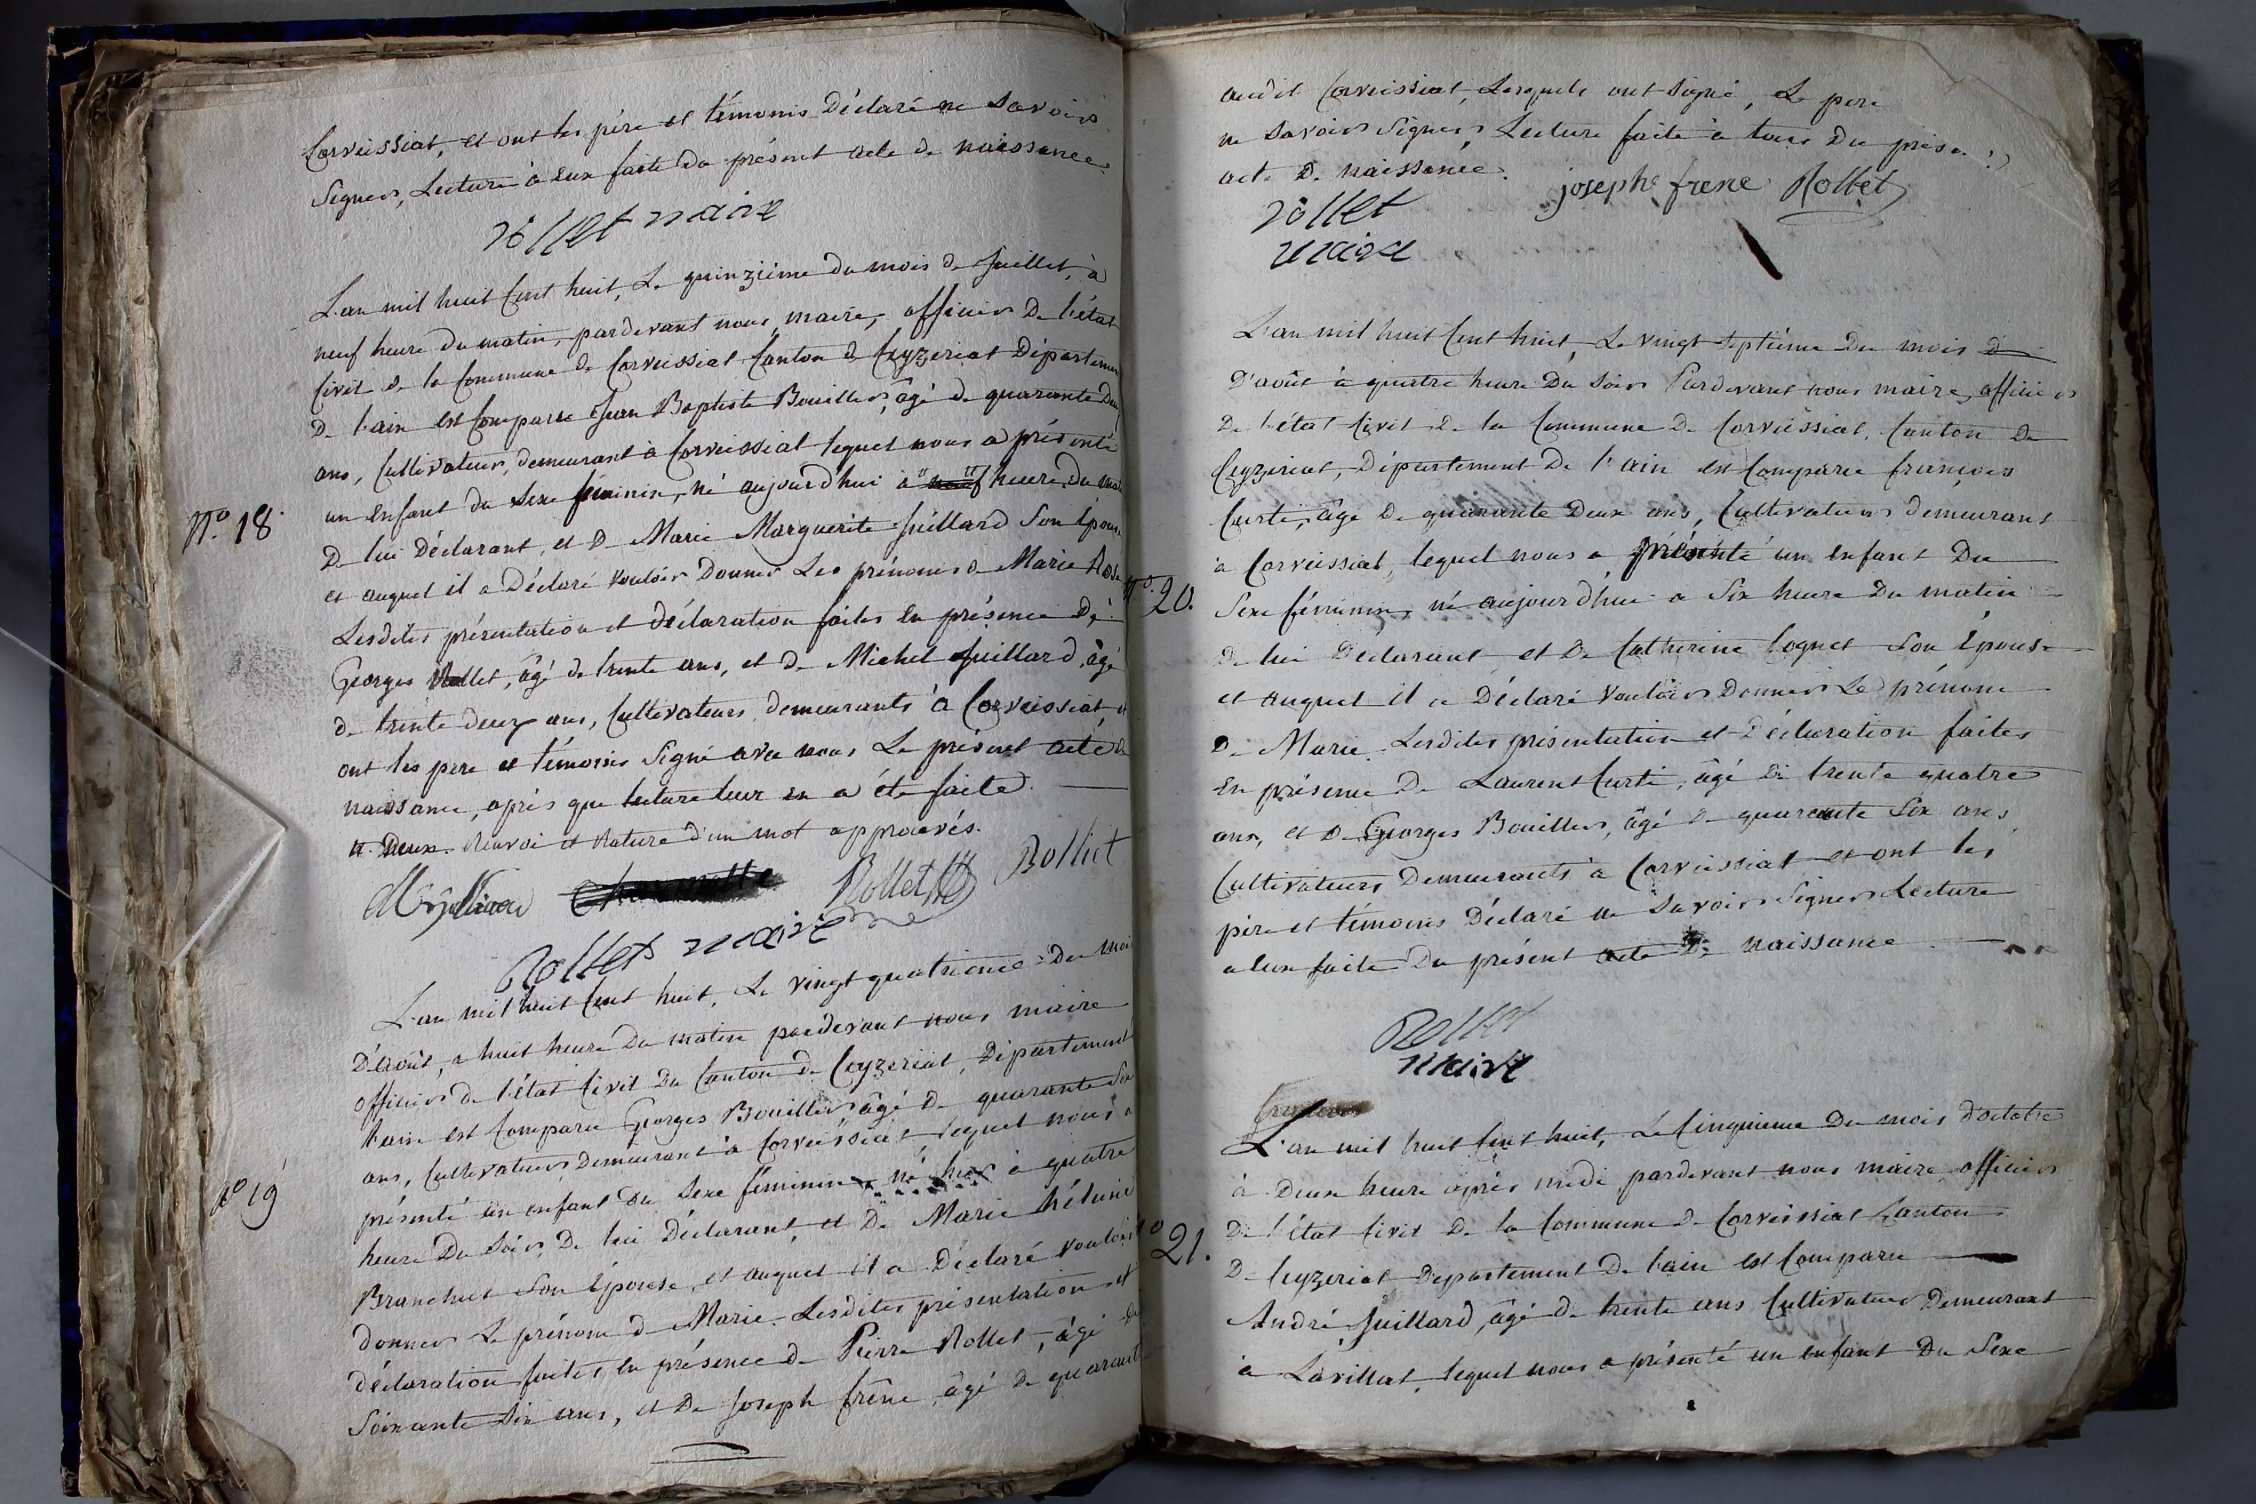 Corveissiat, et ont les père et témoins Déclaré ne savoir
Signer, Lecture à eux faite du présent acte de naissance.
rollet maire
L'an mil huit Cent huit, Le quinzième du mois de Juillet, à
neuf heure du matin, pardevant nous maire, officier De l'état
Civil de la Commune de Corveissiat Canton de Ceyzeriat Départemen
De l'ain est Comparu Jean Baptiste Bouiller, âgé de quarante Deux
ans, Cultivateur, demeurant à Corveissiat lequel nous a présenté
un enfant du sexe féminin, né aujourd'hui à neuf heure Du
N.° 18.
De lui Déclarant, et De Marie Marguerite Juillard Son épouse
et auquel il a Déclaré vouloir Donner Les prénoms de Marie Rose
Lesdites présentation et déclaration faites en présence De
Georges Rollet, âgé de trente ans, et de Michel Juillard, âgé
de trente deux ans, Cultivateurs, demeurants à Corveissiat et
ont les père et témoins Signé avec nous Le présent acte de
naissance, après que lecture leur en a été faite.
Renvoi et Rature d'un mot approuvés.
Rollet Bolliet
Rollet maire
L'an mil huit Cent huit, Le vingt quatrième Du mois
D'août, a huit heure Du matin pardevant nous maire
officier de l'état Civil Du Canton de Ceyzeriat, Département
l'ain est Comparu Georges Bouiller, âgé de quarante Six
ans, Cultivateur, Demeurant à Corveissiat lequel nous a
N° 19
présenté un enfant du Sexe féminin, né hier à quatre
heure Du Soir, De lui Déclarant, et De Marie hélaine
Branchut Son épouse, et auquel il a Déclaré vouloir
donner Le prénom de Marie. Lesdites présentation et
déclaration faites, en présence de Pierre Rollet, âgé de
Soixante Six ans, et De Joseph frêne, âgé de quarante
audit Corveissiat, Lesquels ont signé, Le pere
ne Savoir Signer, Lecture faite à tous Du
acte De naissance.
joseph frene Rollet
rollet
maire
L'an mil huit Cent huit, Le vingt Septième Du mois D
D'août à quatre heure Du Soir Pardevant nous maire, officier
De l'état Civil de la Commune De Corveissiat, Canton De
Ceyzeriat, Département De l'ain est Comparu françois
Curti, âgé De quarante Deux ans, Cultivateur demeurant
à Corveissiat, lequel nous a présenté un enfant Du
N°. 20.
Sexe féminin, né aujourd'hui a Six heure Du matin
De lui Déclarant et De Catherine Coquet Son épouse
et auquel il a Déclaré vouloir Donner Le prénom
De Marie. Lesdites présentation et Déclaration faites
En présence De Laurent Curti, âgé De trente quatre
ans, et De Georges Bouiller, âgé de quarante Six ans
Cultivateurs Demeurants à Corveissiat et ont les
père et témoins Déclaré ne Savoir Signer Lecture
a eux faite Du présent acte De naissance
Rollet
maire
L'an mil huit Cent huit, Le Cinquième Du mois d'octobre
à Deux heure après midi pardevant nous maire, officier
De l'état Civil De la Commune De Corveissiat Canton
21.
De Ceyzeriat Département De l'ain est Comparu
André Juillard, âgé De trente ans Cultivateur Demeurant
à Lavillat, lequel nous a présenté un enfant Du Sexe